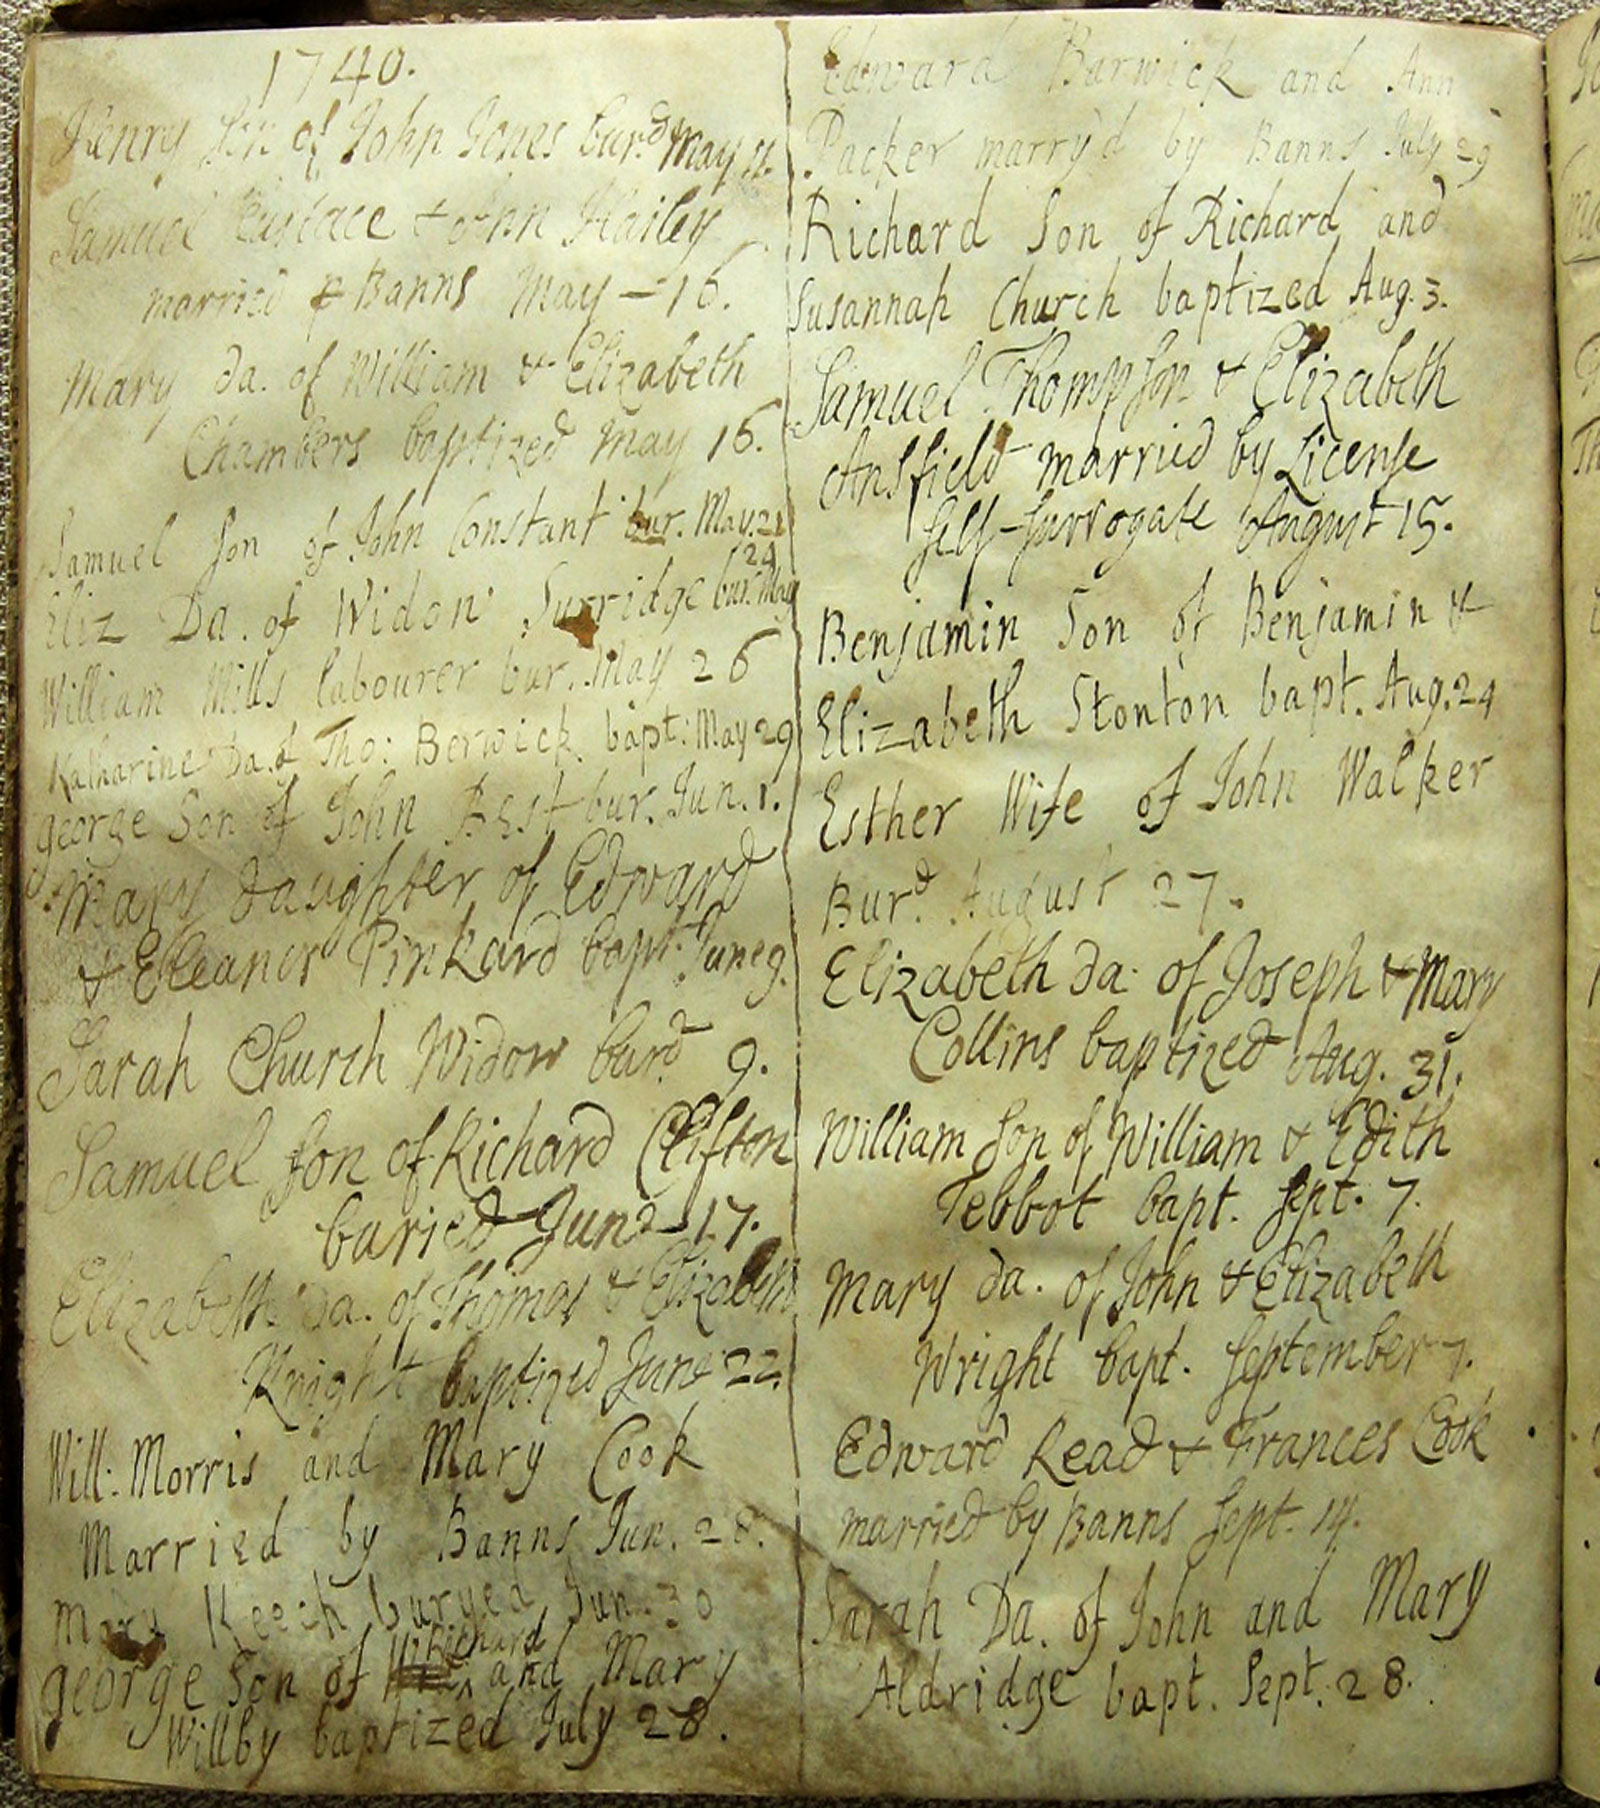 1740.
Henry Son of John Jones bur.d May 11.
Samuel Eustace & Ann Hailey
married p Banns May — 16.
Mary da. of William & Elizabeth
Chambers baptized May 16.
Samuel Son of John Constant bur. May. 21
24
Eliz Da. of Widow Surridge bur. May
William Mills labourer bur. May 26
Katharine Da. of Tho: Berwick bapt: May 29
george Son of John Best bur. Jun. 1.
Mary Daughter of Edward
& Elleanor Pinkard bapt. June 9.
Sarah Church Widow burd 9.
Samuel Son of Richard Clifton
buried June 17.
Elizabeth da. of Thomas & Elizabeth
Knight baptized June 22.
Will: Morris and Mary Cook
Married by Banns Jun. 28.
Mary Keech buryed Jun. 30
Richard
george Son of and Mary
Willby baptized July 28.
Edward Barwick and Ann
Packer marry'd by Banns July 29
Richard Son of Richard and
Susannah Church baptized Aug. 3.
Samuel Thompson & Elizabeth
Ansfield married by License
self-surrogate August 15.
Benjamin Son of Benjamin &
Elizabeth Stonton bapt. Aug. 24
Esther Wife of John Walker
Bur.d August 27.
Elizabeth da. of Joseph & Mary
Collins baptized Aug. 31.
William Son of William & Edith
Tebbot bapt. Sept. 7.
Mary da. of John & Elizabeth
Wright bapt. September 7.
Edward Read & Frances Cook
married by Banns Sept. 14.
Sarah Da. of John and Mary
Aldridge bapt. Sept. 28.